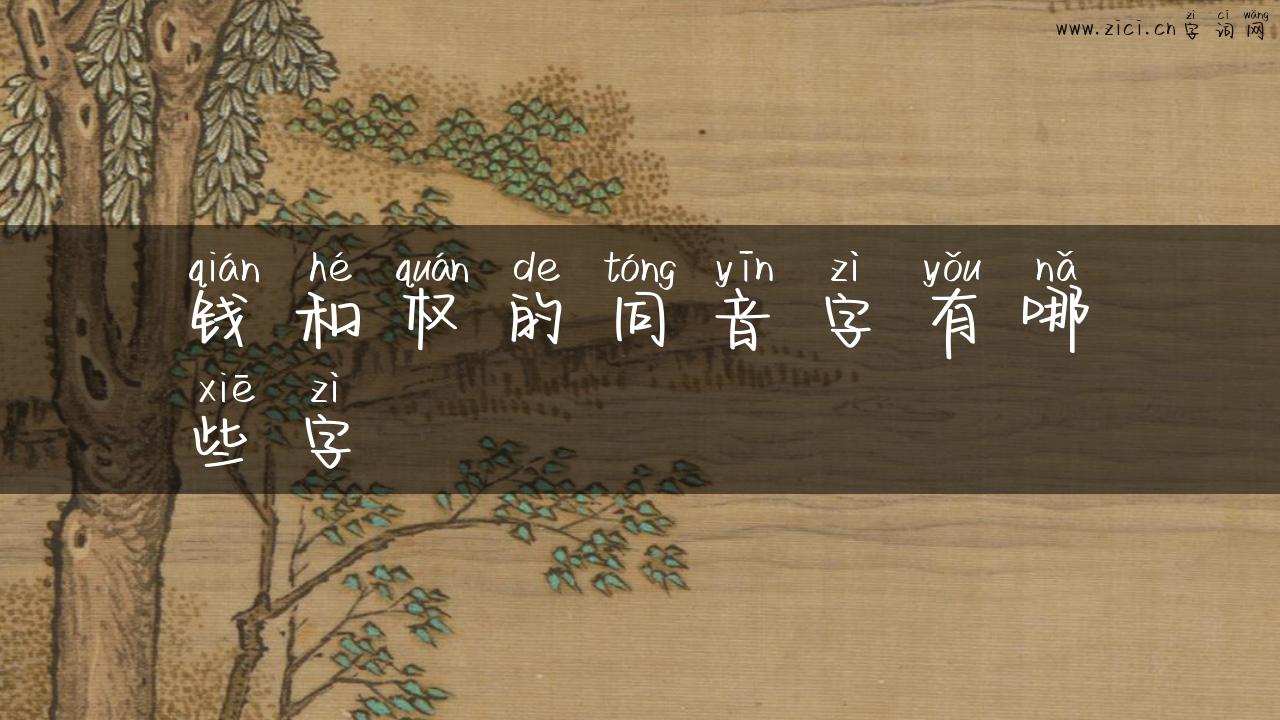 zì cí wǎng
www.zici.cn字词网
qián hé quán de tóng yīn zì yǒu nǎ
钱和权的同音字有哪
xiē zì
些字